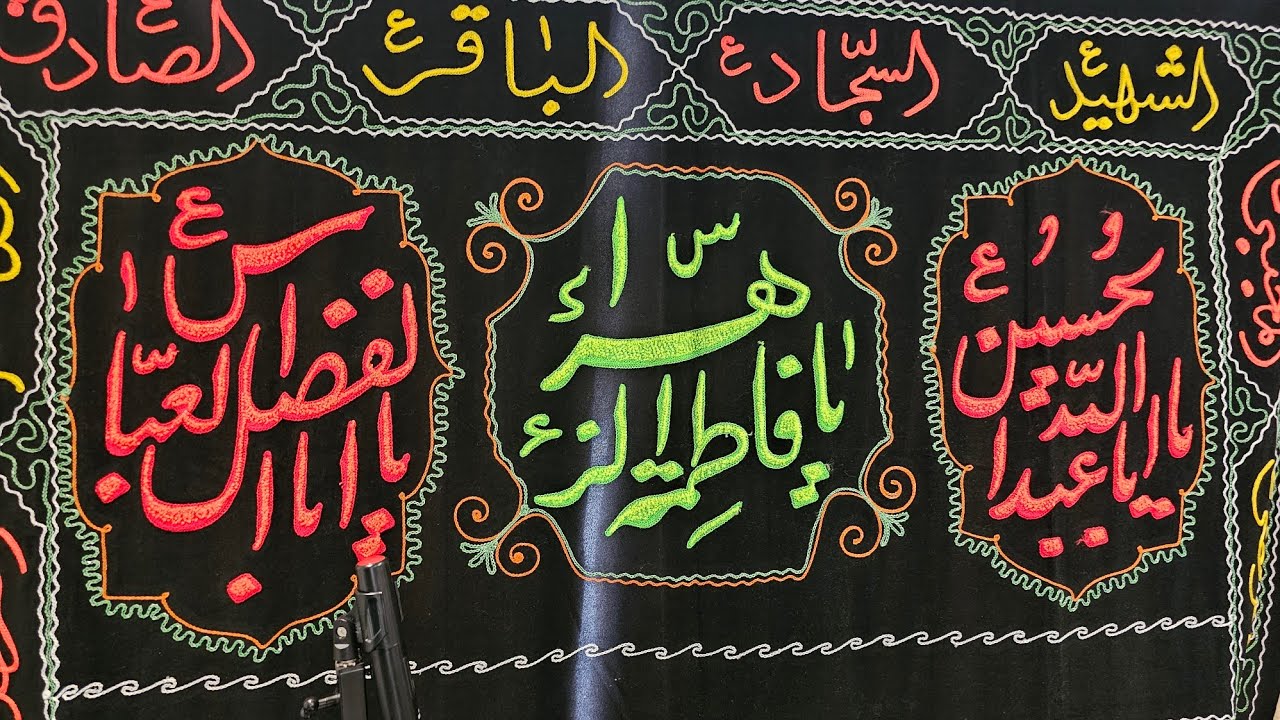 الشهيد ع
السجّاد ع
الباقر ع
الصادق ع
يا ابا عبدالله الحسين ع
يا فاطمة الزهراء س
يا ابا الفضل العبّاس ع